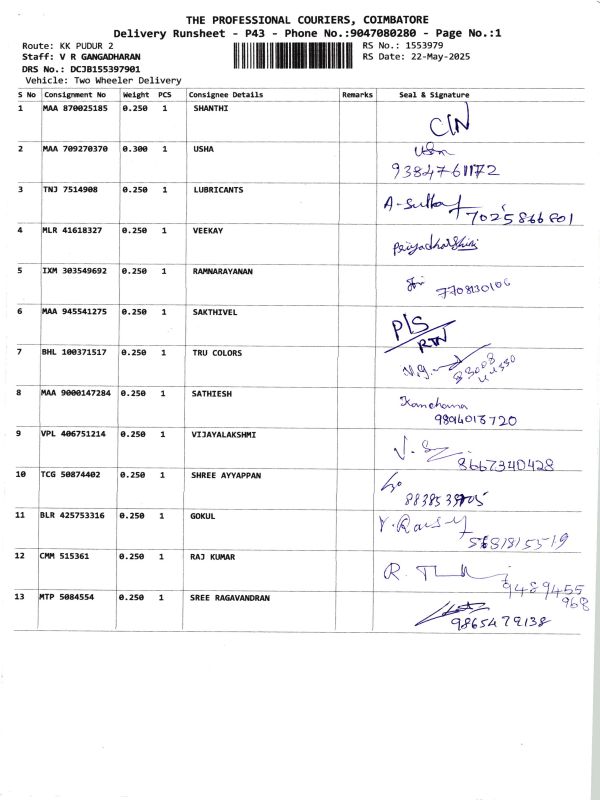 THE PROFESSIONAL COURIERS, COIMBATORE
Delivery Runsheet - P43 - Phone No.:9047080280 - Page No.:1
Route: KK PUDUR 2 RS No.: 1553979
Staff: V R GANGADHARAN RS Date: 22-May-2025
DRS No.: DCJB155397901
Vehicle: Two Wheeler Delivery
S No Consignment No Weight PCS Consignee Details Remarks Seal & Signature
1 MAA 870025185 0.250 1 SHANTHI
C/N
2 MAA 709270370 0.300 1 USHA Usha
9384761172
3 TNJ 7514908 0.250 1 LUBRICANTS
7025866801
4 MLR 41618327 0.250 1 VEEKAY
Priyadharshini
5 IXM 303549692 0.250 1 RAMNARAYANAN
7708130106
6 MAA 945541275 0.250 1 SAKTHIVEL
P/S
RTN
7 BHL 100371517 0.250 1 TRU COLORS
8 MAA 9000147284 0.250 1 SATHIESH
9 VPL 406751214 0.250 1 VIJAYALAKSHMI
8667340428
10 TCG 50874402 0.250 1 SHREE AYYAPPAN
11 BLR 425753316 0.250 1 GOKUL
12 CMM 515361 0.250 1 RAJ KUMAR
9489455
968
13 MTP 5084554 0.250 1 SREE RAGAVANDRAN
9865479138